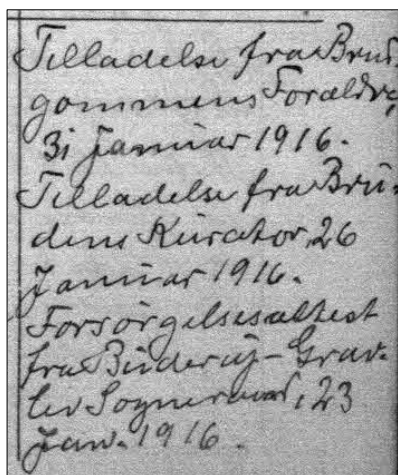 Tilladelse fra Brud-
gommens Forældre,
31 Januar 1916.
Tilladelse fra Bru-
dens Kurator, 26
Januar 1916.
Forsörgelsesattest
fra Buderup-Grav-
lev Sogneraad, 23
Jan. 1916.